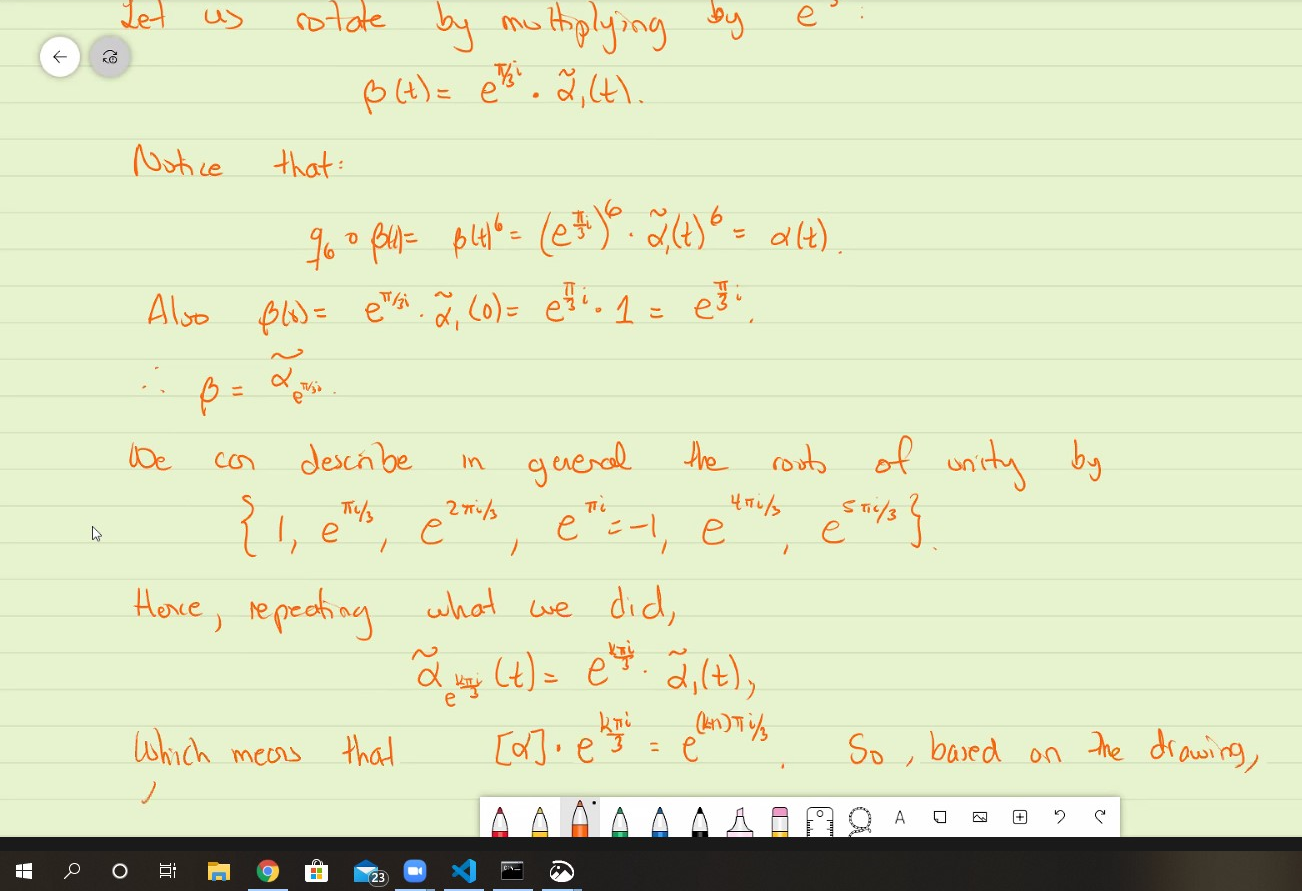 Let us rotate by multiplying by e :
β(t) = e^{π/3 i} · α̃₁(t).
Notice that:
q₆ ∘ β(t) = β(t)⁶ = (e^{π/3 i})⁶ · α̃₁(t)⁶ = α(t).
Also β(0) = e^{π/3 i} · α̃₁(0) = e^{π/3 i} · 1 = e^{π/3 i}.
∴ β = α̃_{e^{π/3 i}}.
We can describe in general the roots of unity by
{1, e^{πi/3}, e^{2πi/3}, e^{πi} = -1, e^{4πi/3}, e^{5πi/3}}.
Hence, repeating what we did,
α̃_{e^{kπi/3}}(t) = e^{kπi/3} · α̃₁(t),
Which means that [α] · e^{kπi/3} = e^{(k+1)πi/3}. So, based on the drawing,
A
23